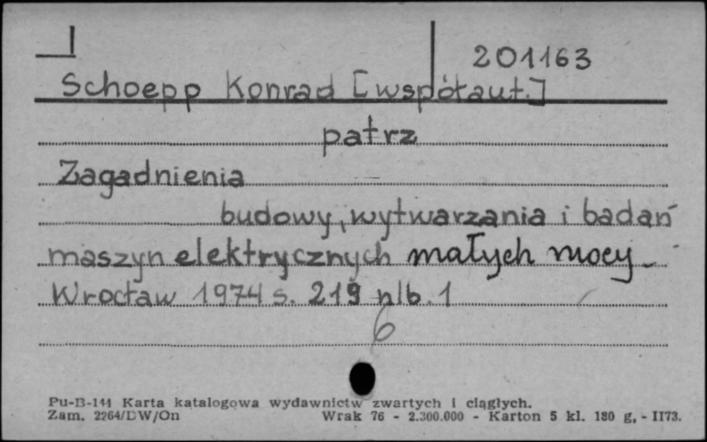 I
201163
Schoepp Konrad [współaut.]
patrz
Zagadnienia
budowy, wytwarzania i badań
maszyn elektrycznych małych mocy
Wrocław 1974 s. 219 nlb. 1
6
Pu-B-144 Karta katalogowa wydawnictw zwartych i ciągłych.
Zam. 2264/DW/On Wrak 76 - 2.300.000 - Karton 5 kl. 180 g, - II73.